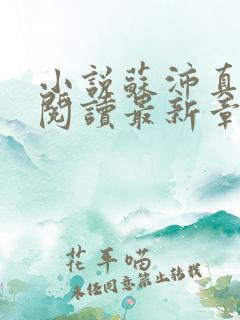 小說蘇沛真
閱讀最新章
花平喵
未经同意禁止转载